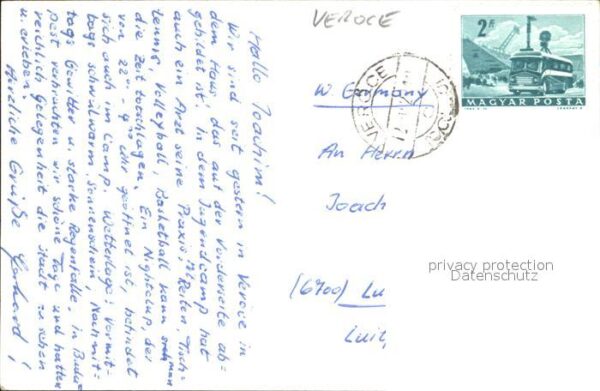 VERŐCE
2 Ft
MAGYAR POSTA
VERŐCE
W. Germany
An Herrn
Joach
(6700) Lu
Luit
privacy protection
Datenschutz
Hallo Joachim!
Wir sind seit gestern in Veroce in
dem Haus das auf der Vorderseite ab-
gebildet ist. in dem Jugendcamp hat
auch ein Arzt seine Praxis. Mit Reiten, Tisch-
tennis, Volleyball, Basketball kann man
die Zeit totschlagen. Ein Nightclup, der
von 22°°- 4°° Uhr geöffnet ist, befindet
sich auch im Camp. Wetterlage: Vormit-
tags schwülwarm, Sonnenschein, Nachmit-
tags Gewitter u. starke Regenfälle. in Buda-
pest verbrachten wir schöne Tage und hatten
reichlich Gelegenheit die Stadt zu sehen
u. erleben.
Herzliche Grüße Gerhard!